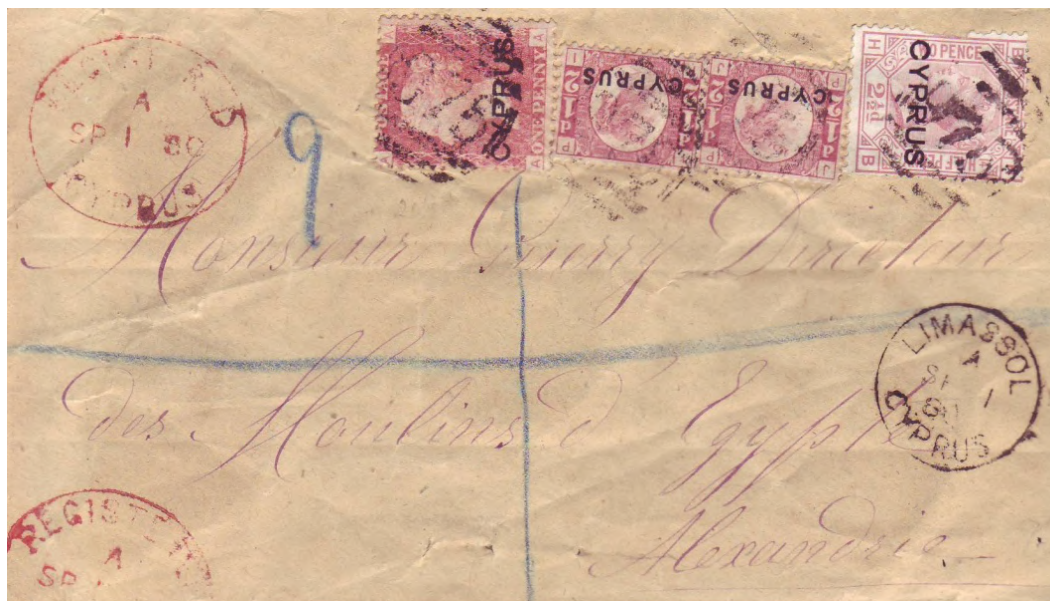 REGISTERED
A
SP 1 80
CYPRUS
9
POSTAGE
ONE PENNY
A A
CYPRUS
1/2 P
I P
CYPRUS
1/2 P
J P
CYPRUS
TWO PENCE
HALFPENNY
2½d
H B
CYPRUS
Monsieur Guerry Directeur
des Moulins d'Egypte
Alexandrie
LIMASSOL
A
SP 1
80
CYPRUS
REGISTERED
A
SP